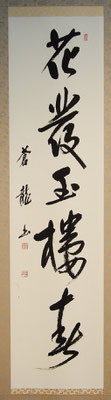 花發玉樓春
蒼龍書